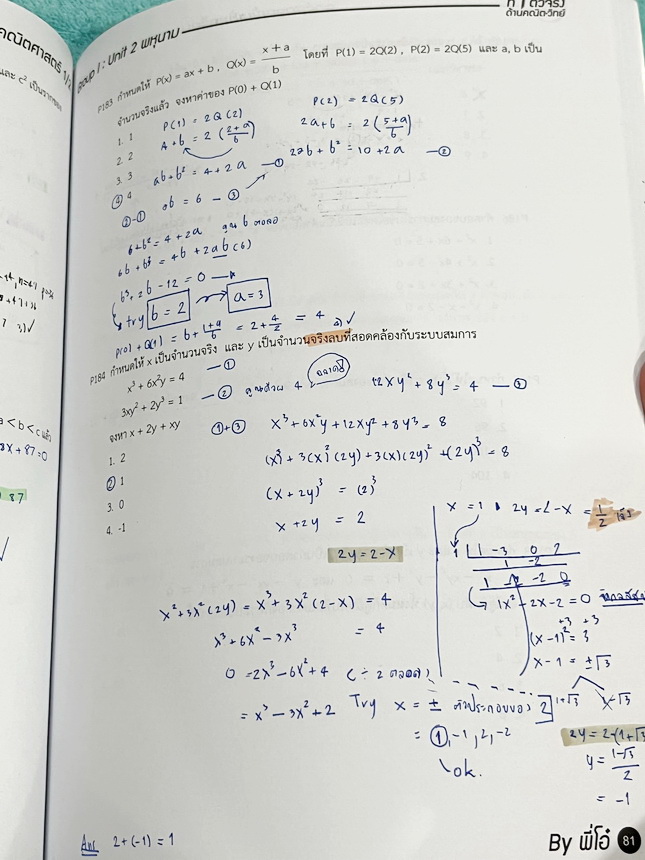 Group 1 : Unit 2 พหุนาม
ด้านคณิต-วิทย์
P183 กำหนดให้ P(x) = ax + b , Q(x) = (x + a)/b โดยที่ P(1) = 2Q(2) , P(2) = 2Q(5) และ a, b เป็น
จำนวนจริงแล้ว จงหาค่าของ P(0) + Q(1)
1. 1
2. 2
3. 3
4
P(1) = 2Q(2)
a+b = 2((2+a)/b)
ab+b² = 4+2a —①
②-① ab = 6 — ③
P(2) = 2Q(5)
2a+b = 2((5+a)/b)
2ab + b² = 10+2a —②
6+b² = 4+2a
6b + b³ = 4b + 2ab (6)
b³+2b-12 = 0
try b = 2
a = 3
P(0) + Q(1) = b + (1+a)/b = 2 + 4/2 = 4
P184 กำหนดให้ x เป็นจำนวนจริง และ y เป็นจำนวนจริงลบที่สอดคล้องกับระบบสมการ
x³ + 6x²y = 4 —①
3xy² + 2y³ = 1 —②
12xy² + 8y³ = 4 —③
จงหา x + 2y + xy
1. 2
② 1
3. 0
4. -1
①+③ x³+6x²y+12xy²+8y³ = 8
(x)³+3(x)²(2y)+3(x)(2y)²+(2y)³ = 8
(x+2y)³ = (2)³
x+2y = 2
2y = 2-x
x³+3x²(2y) = x³+3x²(2-x) = 4
x³+6x²-3x³ = 4
0 = 2x³-6x²+4 (÷2 ตลอด)
= x³-3x²+2 Try x = ± ตัวประกอบของ 2
= ①,-1,2,-2
ok.
x = 1 2y = 2-x = 1/2
1 1 -3 0 2
1 -2 -2
1 -2 -2 0
1x²-2x-2 = 0
+3 +3
(x-1)² = 3
x-1 = ±√3
1+√3
2y = 2-(1+√3
y = (1-√3)/2
= -1
Ans 2+(-1) = 1
By พี่โอ๋ 81